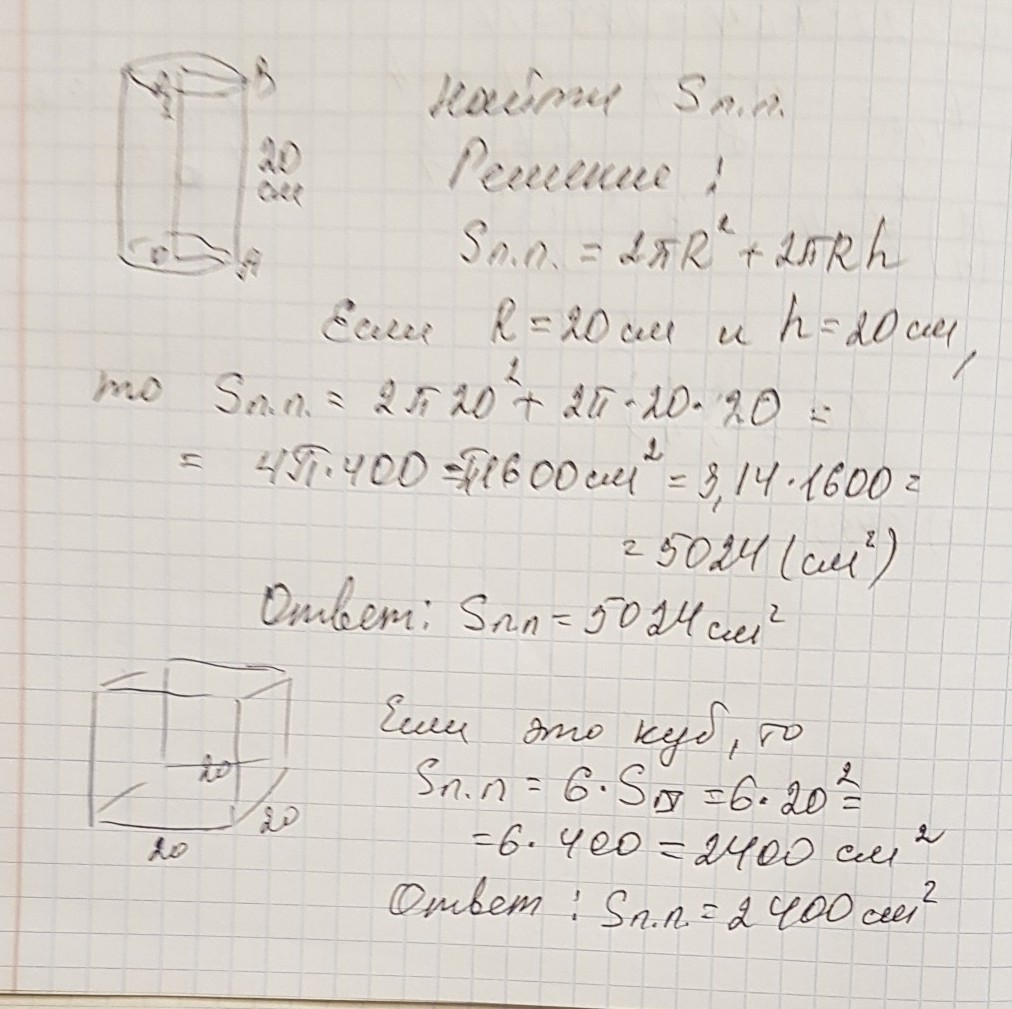 B
20
см
A
Найти Sп.п.
Решение:
Sп.п. = 2πR² + 2πRh
Если R = 20 см и h = 20 см,
то Sп.п. = 2π20² + 2π·20·20 =
= 4π·400 = π1600 см² = 3,14·1600 =
= 5024 (см²)
Ответ: Sпп = 5024 см²
20
20
20
Если это куб, то
Sп.п = 6·S = 6·20² =
= 6·400 = 2400 см²
Ответ: Sп.п. = 2400 см²